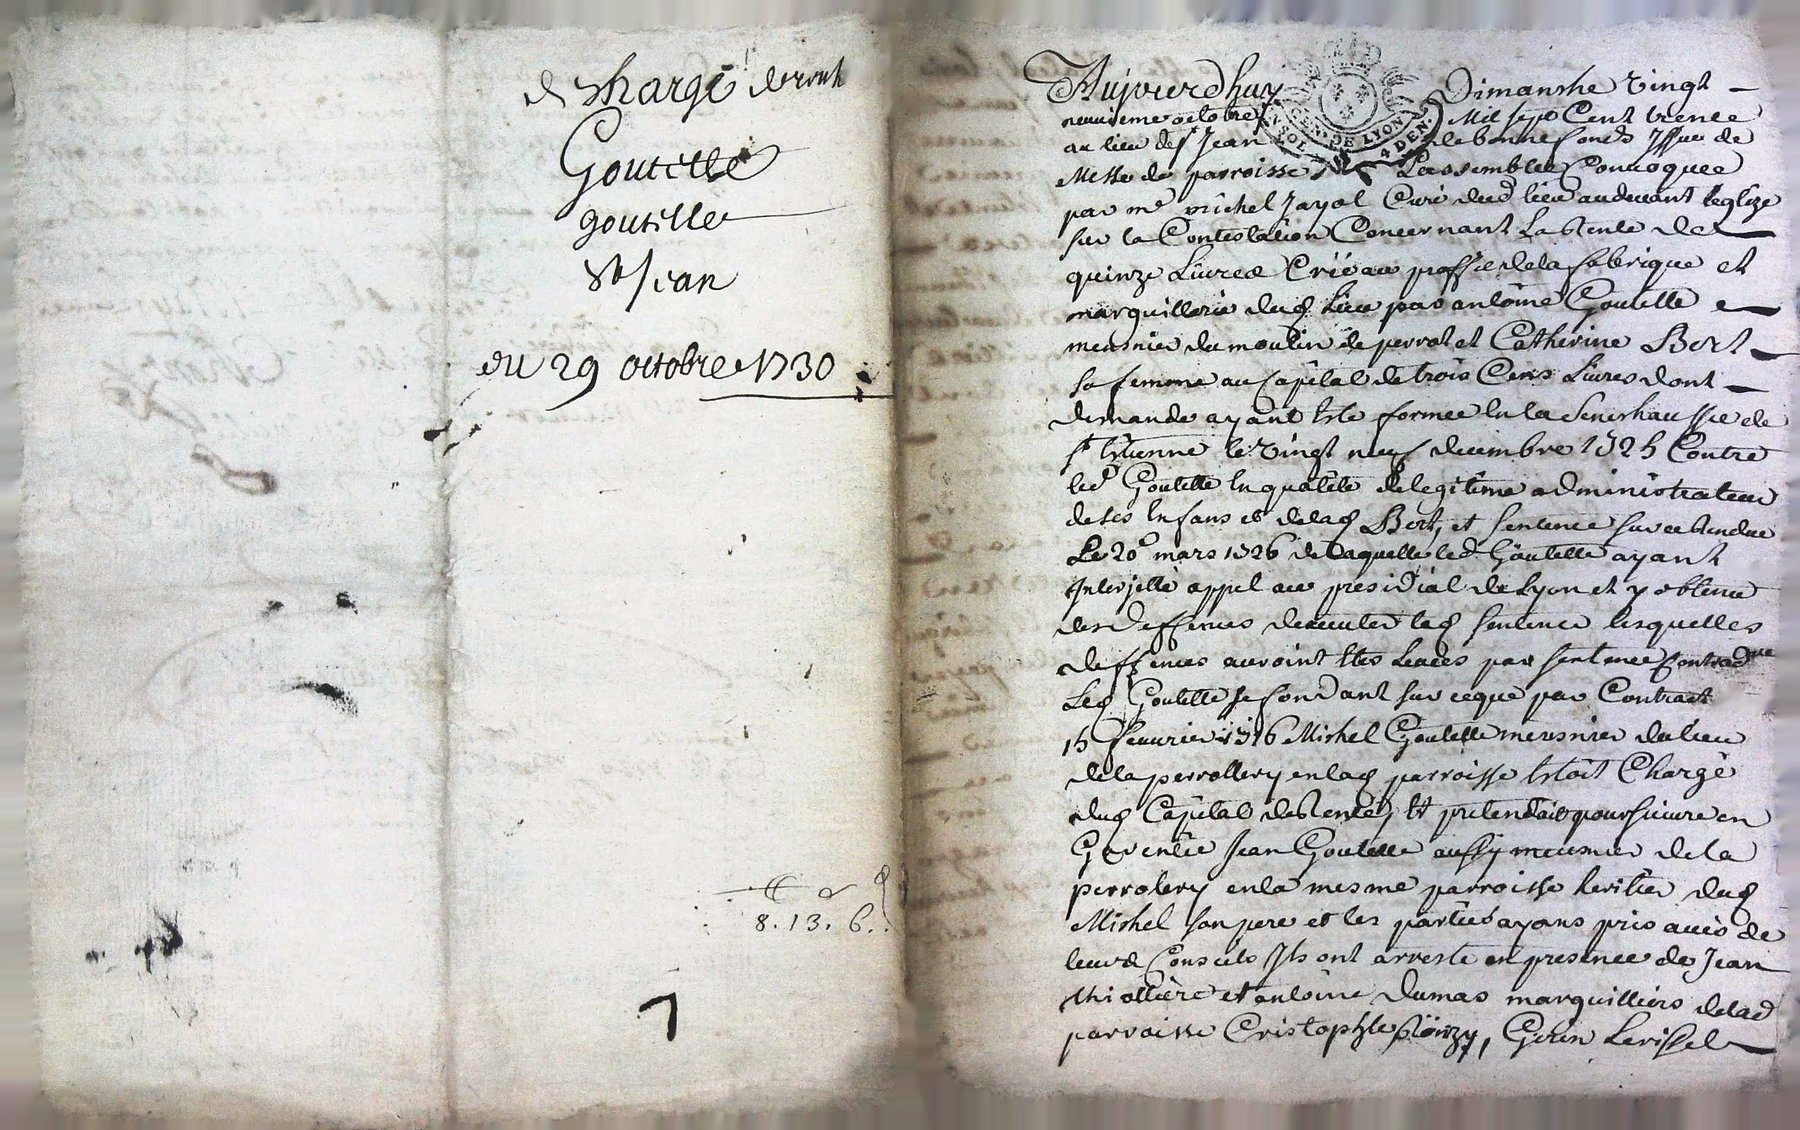 descharge de rente
Goutelle
goutelle
St Jean
du 29 octobre 1730
8. 13. 6.
7
Aujourdhuy Dimanche vingt
neuvieme octobre Mil sept Cent trente
au lieu de St Jean de bonnefonds Issue de
Messe de parroisse Lassemblee Convoquee
par me michel Jayol Curé dud lieu audevant leglize
sur la Contestation Concernant La Rente de
quinze Livres Créé au proffit de la fabrique et
marguillerie dud Lieu par antoine Goutelle
meusnier du moulin de perrot et Catherine Bert
sa femme au Capital de trois Cens Livres dont
demande ayant Esté formee En la Seneschaussée de
st Estienne le vingt neuf decembre 1725 Contre
led Goutelle En qualité de legitime administrateur
de ses Enfans et de lad Bert, et sentence sur ce Rendue
Le 20e mars 1726 de laquelle led Goutelle ayant
Interjetté appel au presidial de Lyon et y obtenu
des deffences dexecuter lad sentence lesquelles
deffences auroint Estes Levées par sentence Contradre
Led Goutelle se fondant sur ce que par Contract
15 feuvrier 1716 Michel Goutelle meusnier du lieu
de la perrollery en lad parroisse Estoit Chargé
dud Capital de Rente, Et pretendait poursuivre en
Garentie Jean Goutelle aussy meusnier de la
perrolery en la mesme parroisse heritier dud
Michel son pere et les parties ayans pris avis de
leurs Conseils Ils ont arresté en presence de Jean
thiolliere et antoine Dumas marguilliers de lad
parroisse Cristophle